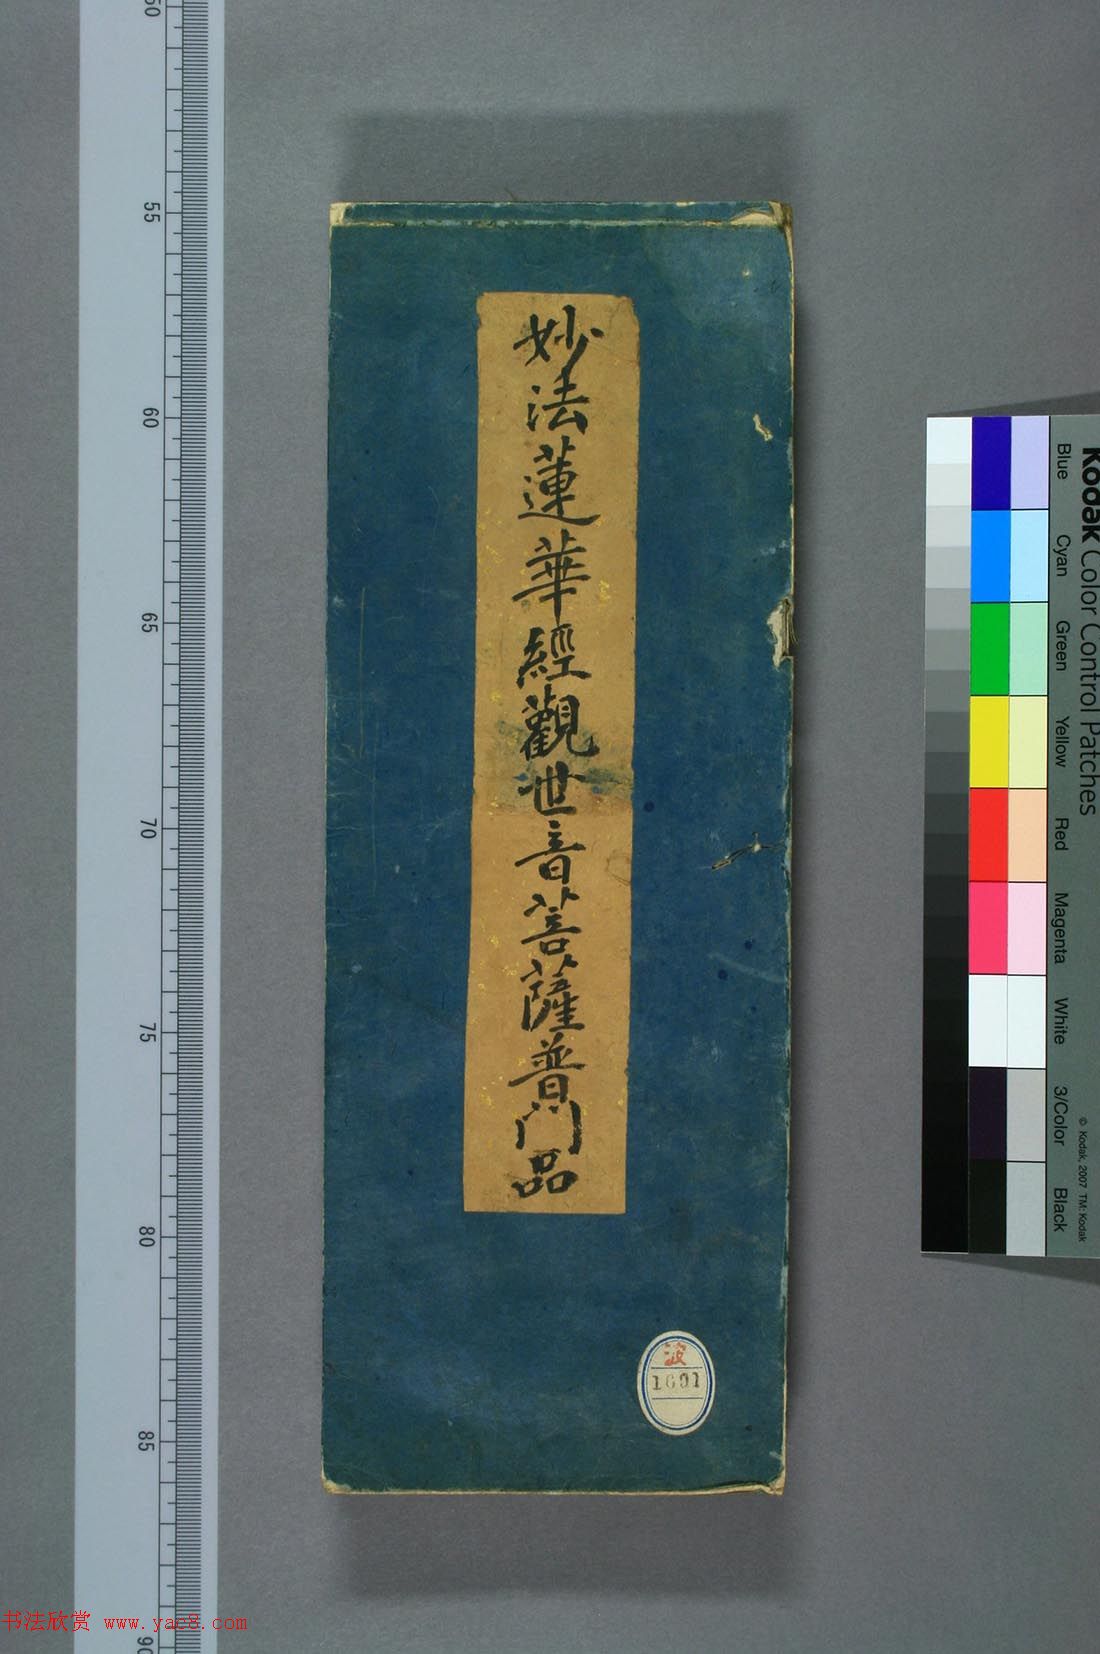 妙法蓮華經觀世音菩薩普門品
波
1691
50
55
60
65
70
75
80
85
90
Kodak Color Control Patches
Blue
Cyan
Green
Yellow
Red
Magenta
White
3/Color
Black
© Kodak, 2007 TM: Kodak
书法欣赏 www.yac8.com